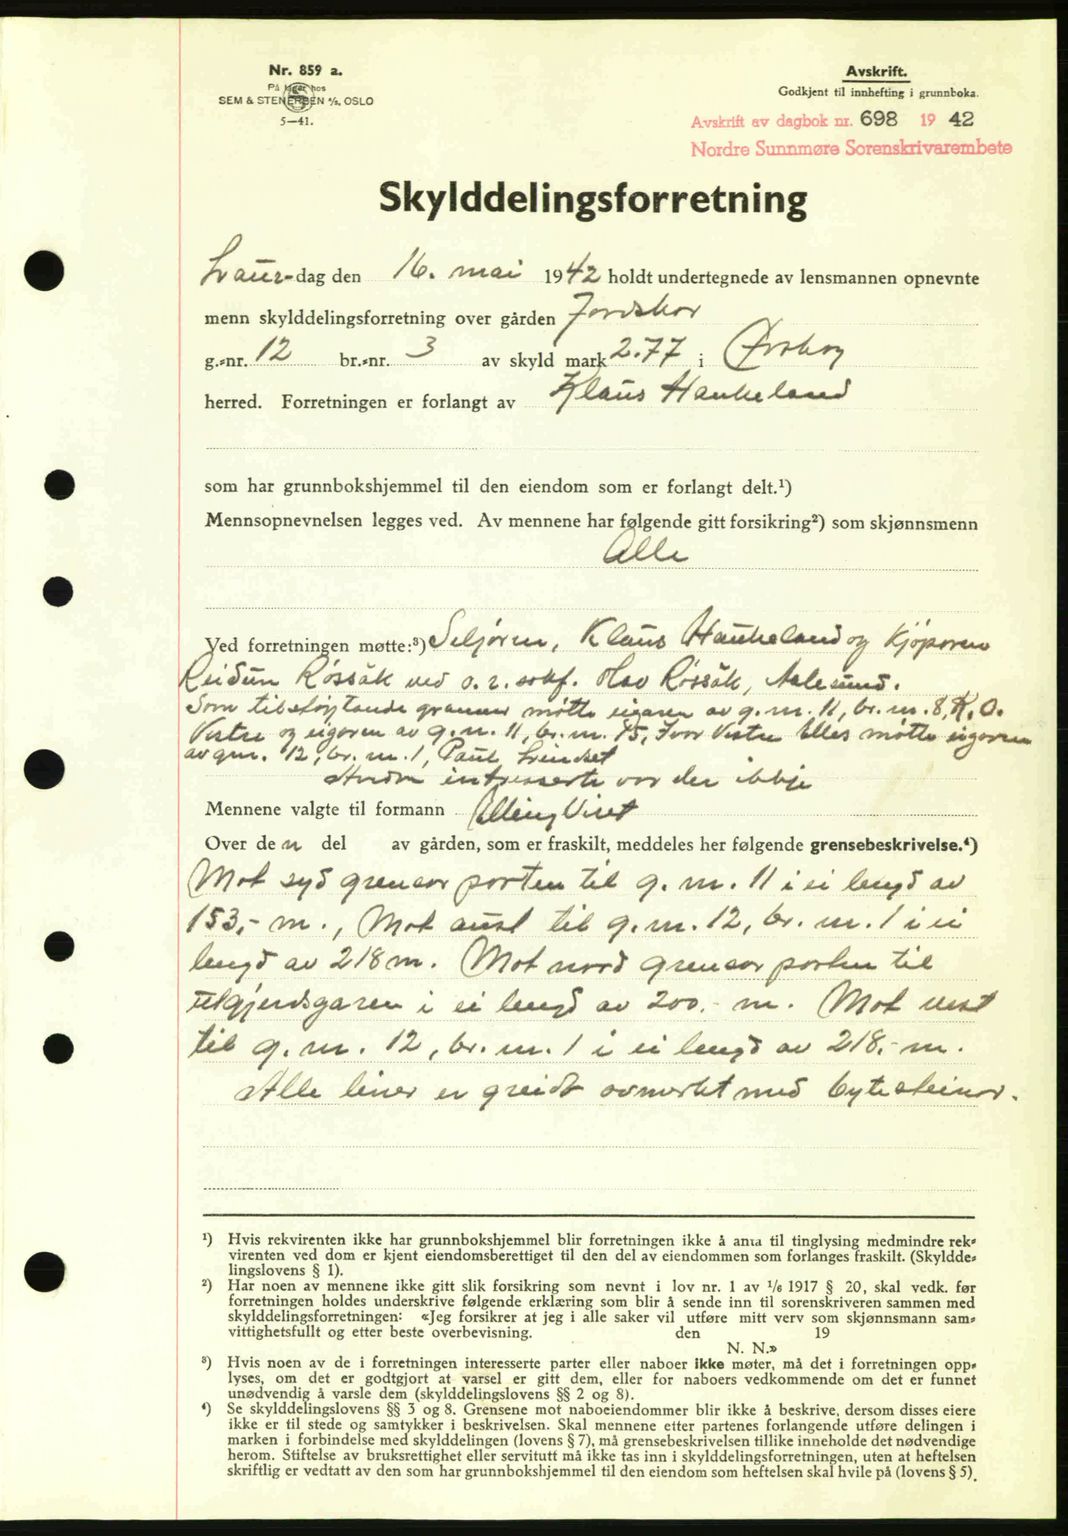 Nr. 859 a.
På lager hos
SEM & STENERSEN A/S, OSLO
5—41.
Avskrift.
Godkjent til innhefting i grunnboka.
Avskrift av dagbok nr. 698 1942
Nordre Sunnmøre Sorenskrivarembete
Skylddelingsforretning
Laur-dag den 16. mai 1942 holdt undertegnede av lensmannen opnevnte
menn skylddelingsforretning over gården Jordskor
g.-nr. 12 br.-nr. 3 av skyld mark 2.77 i Ørskog
herred. Forretningen er forlangt av Klaus Haukeland
som har grunnbokshjemmel til den eiendom som er forlangt delt.¹)
Mennsopnevnelsen legges ved. Av mennene har følgende gitt forsikring²) som skjønnsmenn
Alle
Ved forretningen møtte:³) Seljaren, Klaus Haukeland og kjøparen
Reidun Røssåk ved o.r.sakf. Olav Røssåk, Aalesund.
Som tilstøytande grannar møtte eigaren av g.nr. 11, br.nr. 8, K. O.
Vestre og eigaren av g.nr. 11, br.nr. 15, Ivar Vestre Elles møtte eigaren
av gnr. 12, br.nr. 1, Paul Lindset
Andre intresserte var der ikkje
Mennene valgte til formann Elling Viset
Over den del av gården, som er fraskilt, meddeles her følgende grensebeskrivelse.⁴)
Mot syd grensar parten til g.nr. 11 i ei lengd av
153,- m., Mot aust til g.nr. 12, br.nr. 1 i ei
lengd av 218 m. Mot nord grensar parten til
utgjerdsgaren i ei lengd av 200,- m. Mot vest
til g.nr. 12, br.nr. 1 i ei lengd av 218,- m.
Alle liner er greidt avmerkt med bytesteinar.
¹) Hvis rekvirenten ikke har grunnbokshjemmel blir forretningen ikke å anta til tinglysing medmindre rek-
virenten ved dom er kjent eiendomsberettiget til den del av eiendommen som forlanges fraskilt. (Skyldde-
lingslovens § 1).
²) Har noen av mennene ikke gitt slik forsikring som nevnt i lov nr. 1 av 1/6 1917 § 20, skal vedk. før
forretningen holdes underskrive følgende erklæring som blir å sende inn til sorenskriveren sammen med
skylddelingsforretningen: «Jeg forsikrer at jeg i alle saker vil utføre mitt verv som skjønnsmann sam-
vittighetsfullt og etter beste overbevisning. den 19
N. N.»
³) Hvis noen av de i forretningen interesserte parter eller naboer ikke møter, må det i forretningen opp-
lyses, om det er godtgjort at varsel er gitt dem, eller for naboers vedkommende om det er funnet
unødvendig å varsle dem (skylddelingslovens §§ 2 og 8).
⁴) Se skylddelingslovens §§ 3 og 8. Grensene mot naboeiendommer blir ikke å beskrive, dersom disses eiere
ikke er til stede og samtykker i beskrivelsen. Skal mennene etter partenes forlangende utføre delingen i
marken i forbindelse med skylddelingen (lovens § 7), må grensebeskrivelsen tillike inneholde det nødvendige
herom. Stiftelse av bruksrettighet eller servitutt må ikke tas inn i skylddelingsforretningen, uten at heftelsen
skriftlig er vedtatt av den som har grunnbokshjemmel til den eiendom som heftelsen skal hvile på (lovens § 5).